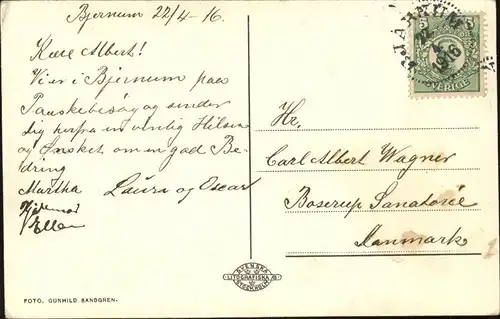 Bjernum 22/4-16.
Kære Albert!
Vi er i Bjernum paa
Paaskebesøg og sender
dig herfra en venlig Hilsen
og Ønsket om en god Be-
dring
Martha Laura og Oscar
Hjalmar
Ellen
BJÄRNUM
22
4
1916
5 5
SVERIGE
Hr.
Carl Albert Wagner
Boserup Sanatorie
Danmark
SVENSKA
LITOGRAFISKA AB
STOCKHOLM
FOTO. GUNHILD SANDGREN.